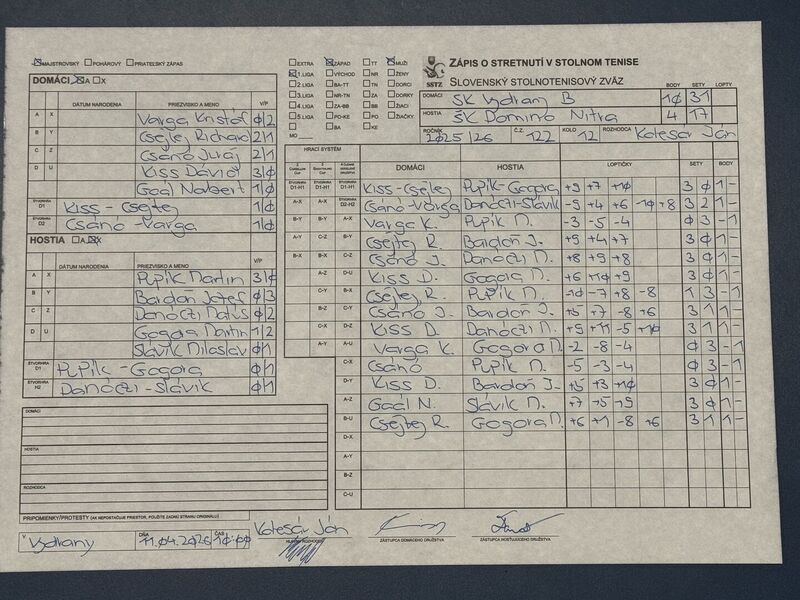 MAJSTROVSKÝ POHÁROVÝ PRIATEĽSKÝ ZÁPAS
EXTRA ZÁPAD TT MUŽI
1.LIGA VÝCHOD NR ŽENY
2.LIGA BA-TT TN DORCI
3.LIGA NR-TN ZA DORKY
4.LIGA ZA-BB BB ŽIACI
5.LIGA PO-KE PO ŽIAČKY
BA KE
MO
SSTZ
ZÁPIS O STRETNUTÍ V STOLNOM TENISE
SLOVENSKÝ STOLNOTENISOVÝ ZVÄZ
BODY SETY LOPTY
DOMÁCI ŠK Vydrany B 10 31
HOSTIA ŠK Domino Nitra 4 17
ROČNÍK 2025/26 Č.Z. 122 KOLO 12 ROZHODCA Kolesár Ján
DOMÁCI A X
DÁTUM NARODENIA PRIEZVISKO A MENO V/P
A X Varga Kristóf 0 2
B Y Csejtey Richard 2 1
C Z Csánó Juraj 2 1
D U Kiss Dávid 3 0
Gaál Norbert 1 0
ŠTVORHRA D1 Kiss - Csejtey 1 0
ŠTVORHRA D2 Csánó - Varga 1 0
HOSTIA A X
DÁTUM NARODENIA PRIEZVISKO A MENO V/P
A X Pupík Martin 3 1
B Y Bardoň Jozef 0 3
C Z Danóczi Matúš 0 2
D U Gogora Martin 1 2
Slávik Miloslav 0 1
ŠTVORHRA D1 Pupík - Gogora 0 1
ŠTVORHRA H2 Danóczi - Slávik 0 1
HRACÍ SYSTÉM
DOMÁCI HOSTIA LOPTIČKY SETY BODY
ŠTVORHRA D1-H1 ŠTVORHRA D1-H1 ŠTVORHRA D1-H1 Kiss - Csejtey Pupík - Gogora +9 +7 +10 3 0 1 -
A-X A-X ŠTVORHRA D2-H2 Csánó - Varga Danóczi - Slávik -5 +4 +6 -10 +8 3 2 1 -
B-Y B-Y A-X Varga K. Pupík M. -3 -5 -4 0 3 - 1
A-Y C-Z B-Y Csejtey R. Bardoň J. +9 +4 +7 3 0 1 -
B-X B-X C-Z Csánó J. Danóczi M. +8 +9 +8 3 0 1 -
A-Z D-U Kiss D. Gogora M. +6 +10 +9 3 0 1 -
C-Y B-X Csejtey R. Pupík M. -10 -7 +8 -8 1 3 - 1
B-Z C-Y Csánó J. Bardoň J. +5 +7 -8 +6 3 1 1 -
C-X D-Z Kiss D. Danóczi M. +9 +11 -5 +10 3 1 1 -
A-Y A-U Varga K. Gogora M. -2 -8 -4 0 3 - 1
C-X Csánó Pupík M. -5 -3 -4 0 3 - 1
D-Y Kiss D. Bardoň J. +5 +3 +10 3 0 1 -
A-Z Gaál N. Slávik M. +7 +5 +9 3 0 1 -
B-U Csejtey R. Gogora M. +6 +1 -8 +6 3 1 1 -
D-X
A-Y
B-Z
C-U
DOMÁCI
HOSTIA
ROZHODCA
PRIPOMIENKY/PROTESTY (AK NEPOSTAČUJE PRIESTOR, POUŽITE ZADNÚ STRANU ORIGINÁLU)
V Vydrany DŇA 11.04.2026 ČAS 10:00 Kolesár Ján
HLAVNÝ ROZHODCA ZÁSTUPCA DOMÁCEHO DRUŽSTVA ZÁSTUPCA HOSŤUJÚCEHO DRUŽSTVA